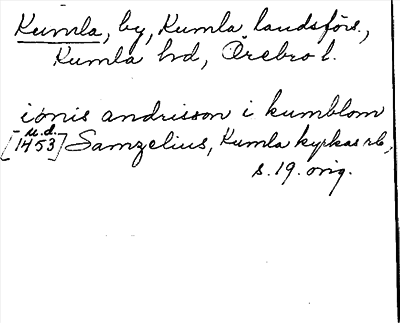 Kumla, by, Kumla landsförs.,
Kumla hd, Örebro l.
ionis andrisson i kumblom
u.d.
[1453] Samzelius, Kumla kyrkas rb,
s. 19. orig.